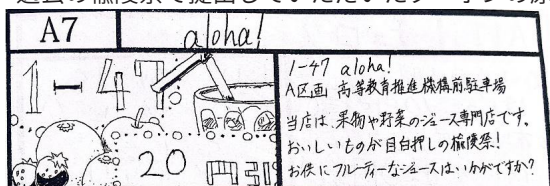 A7
aloha!
1-47
20 円引
1-47 aloha!
A区画 高等教育推進機構前駐車場
当店は、果物や野菜のジュース専門店です。
おいしいものが目白押しの楡陵祭!
お供にフルーティーなジュースはいかがですか?